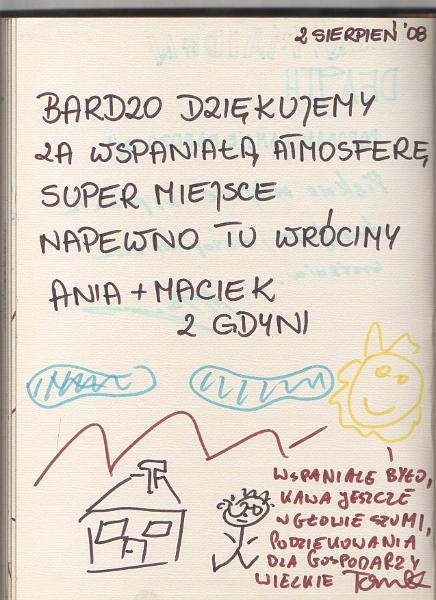 2 SIERPIEŃ '08
BARDZO DZIĘKUJEMY
ZA WSPANIAŁĄ ATMOSFERĘ
SUPER MIEJSCE
NAPEWNO TU WRÓCIMY
ANIA + MACIEK
Z GDYNI
WSPANIALE BYŁO,
KAWA JESZCZE
W GŁOWIE SZUMI,
PODZIEKOWANIA
DLA GOSPODARZY
WIELKIE Tomek